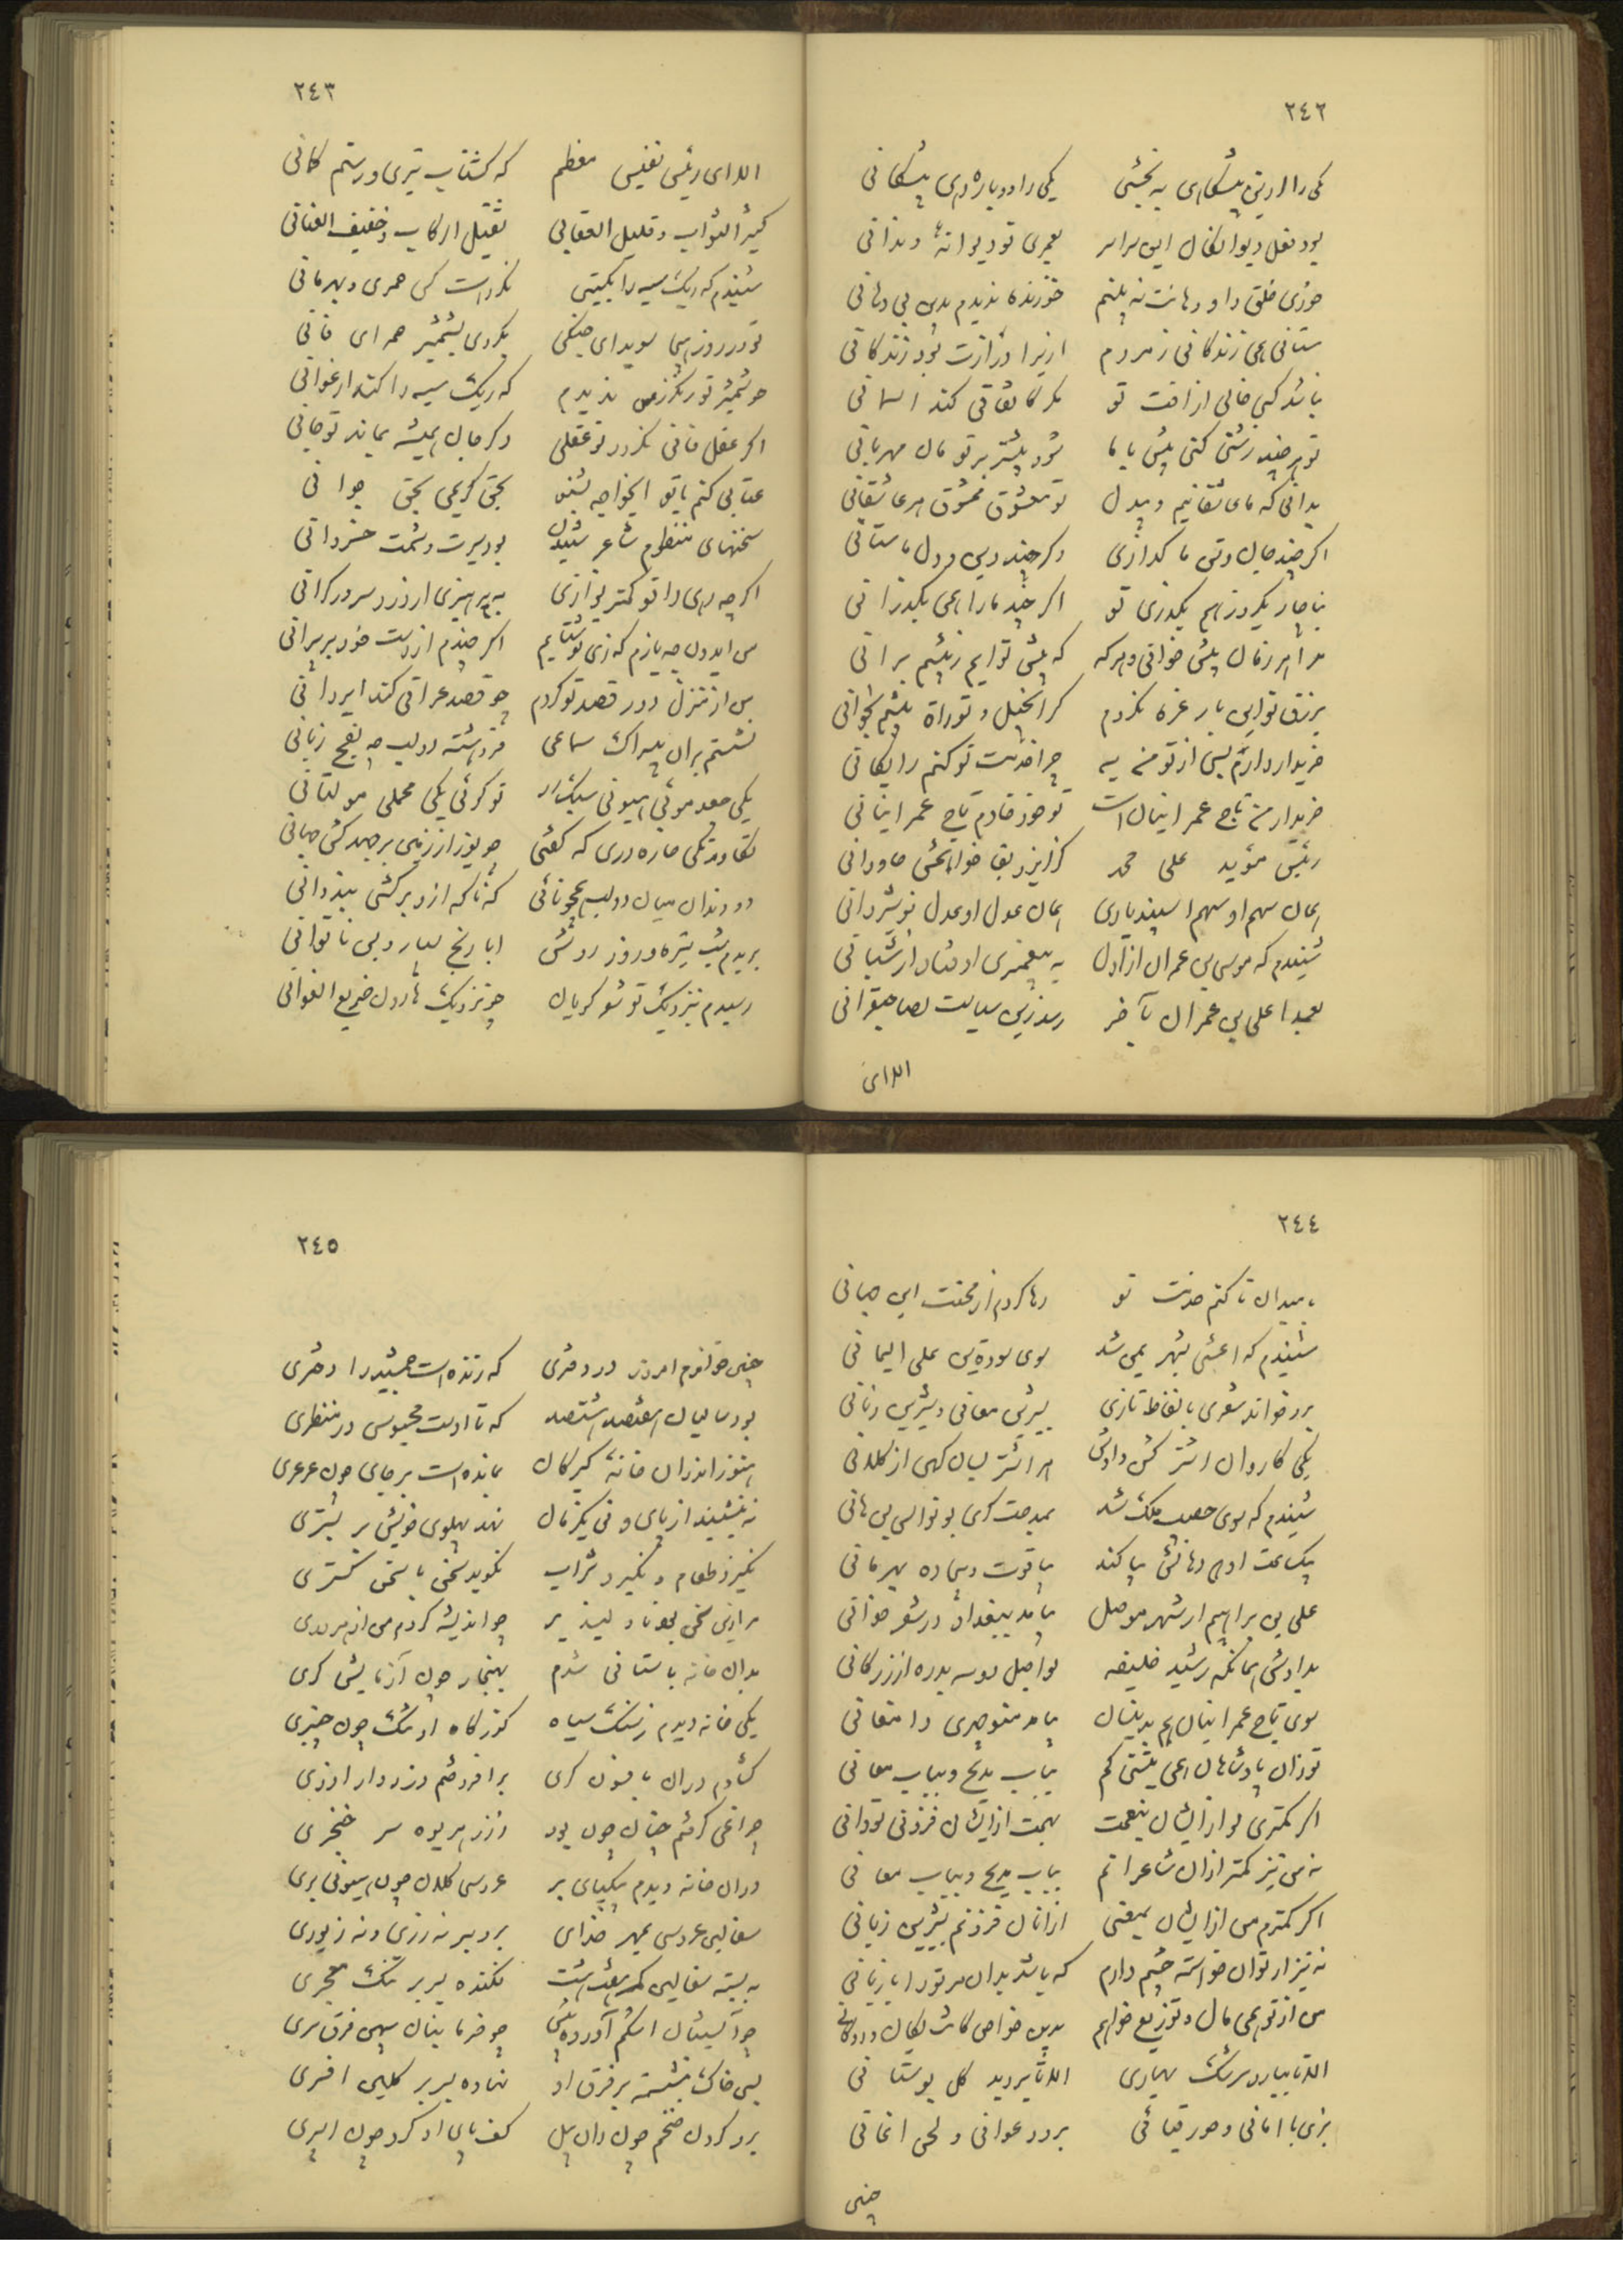 ٢٤٢
یکی را دو باره دهی پیشگانی
بود فعل دیوانگان این سراسر بعمری تو دیوانهٔ و ندانی
خوری خلق را و دهانت نه بینم خورنده ندیدم بدین بی دهانی
ستانی همی زندگانی ز مردم ازیرا درازت بود زندگانی
نباشد کسی خالی از آفت تو مگر کاتفاقی کند آسمانی
تو هر چند زشتی کنی بیش با ما شود بیشتر بر تو مان مهربانی
ندانی که ما عاشقانیم و بیدل تو معشوق ممشوق ما عاشقانی
اگر چند جان و تن ما گدازی وگر چند دین و دل ما ستانی
بناچار یکروز هم بگذری تو اگر چند ما را همی بگذرانی
مرا هر زمان پیش خوانی و هر که که پیش تو آیم ز پیشم برانی
بزرق تو این بار غره نگردم گر انجیل و توراة پیشم بخوانی
خریدار دارم من از تو بسی به چرا خدمت تو کنم رایگانی
خریدار من تاج عمرانیان است تو خود خادم تاج عمرانیانی
رئیس مؤید علی محمد کز ایزد بقا خواهمش جاودانی
همان سهم او سهم اسپندیاری همان عدل او عدل نوشیروانی
شنیدم که موسی بن عمران ز اول به پیغمبری اوفتاد از شبانی
بعمدا علی بن عمران بآخر رسد زین سیاست بصاحبقرانی
الا ای
٢٤٣
الا ای رئیس نفیس معظم که گشتاسب تیری و رستم کمانی
کثیر الثواب و قلیل العقابی ثقیل الرکاب و خفیف العنانی
شنیدم که ریگ سیه را بگیتی نکرده است کس حمری و بهرمانی
تو در روز هیجا سویدای جنگی بکردی بشمشیر حمرای قانی
چو شمشیر تو رنگرز من ندیدم که ریگ سیه را کند ارغوانی
اگر عقل فانی نگردد تو عقلی وگر جان همیشه بماند تو جانی
عتابی کنم با تو ایخواجه بشنو بحق کریمی بحق جوانی
سخنهای منظوم شاعر شنیدن بود سیرت و شیمت خسروانی
اگر چه رهی را تو کمتر نوازی به پرهیزی از درد سر در گرانی
من ایدون چه بازم که زی تو شتابم اگر چندم از دست خود بر پرانی
من از منزل دور قصد تو کردم چو قصد عراقی کند قیروانی
نشستم بر آن بیسراک سماعی فرو هشته دو لب چو لفج زبانی
یکی جعد موئی هیونی سبک رو تو گوئی یکی محملی مولتانی
تکاور یکی خاره دری که گفتی چو یوز از زمین بر جهد کش جهانی
دو دندان میان دو لب همچو نائی که ناگه ازو بر کشی بیزوانی
بریدم شب تیره و روز روشن ابا رنج بسیار و بس ناتوانی
رسیدم بنزدیک تو شعر گویان چو نزدیک هارون صریع الغوانی
٢٤٤
بامید آن تا کنم خدمت تو رها کردم از محنت این جهانی
شنیدم که اعشی بشهر یمن شد سوی هوذة بن علی الیمانی
برو خواند شعری بالفاظ تازی بشیرین معانی و شیرین زبانی
یکی کاروان اشتر گشن دادش هر اشتر بسان کهی از کلانی
شنیدم که سوی خصیب ملک شد بمدحت گری بو نواس بن هانی
بیک بیت ازو پر دهانش بیا کند بیاقوت و بیجاده بهرمانی
علی بن براهیم از شهر موصل بیامد ببغداد در شعر خوانی
بدادش همانگه رشید خلیفه بواصل دو سه بدره از زر کانی
سوی تاج عمرانیان هم بدینسان بیامد منوچهری دامغانی
تو زان پادشاهان همی بیشتی کم بباب مدیح و بباب معانی
اگر کمتری تو از ایشان بنعمت بهمت از ایشان فزونی تو دانی
نه من نیز کمتر از آن شاعرانم بباب مدیح و بباب معانی
اگر کمترم من از ایشان بمعنی از آنان فزونم بشیرین زبانی
نه نیز از تو آن خواسته چشم دارم که باشد بدان مر تو را با زیانی
من از تو همی مال و توزیع خواهم بدین خواهمکاریت بگان و دوگانی
الا تا ببارد سرشک بهاری الا تا بروید گل بوستانی
بزی با امانی و حور قبائی برود غوانی و لحن اغانی
چنین
٢٤٥
چنین خواندم امروز در دفتری که زنده است جمشید را دختری
بود سالیان هفتصد هشتصد که تا اوست محبوس در منظری
هنوز اندر آن خانهٔ گبرکان بمانده است بر جای چون عرعری
نه بنشیند از پای و نی یکزمان نهد پهلوی خویش بر بستری
نگیرد طعام و نگیرد شراب نگوید سخن با سخن گستری
مرا این سخن بود نا دلپذیر چو اندیشه کردم من از هر دری
بدان خانه باستانی شدم بهنجار چون آزمایش گری
یکی خانه دیدم ز سنگ سیاه گذرگاه او تنگ چون چنبری
گشادم در آن بافسون گری بر افروختم زروار آذری
چراغی گرفتم چنان چون بود ز زر هریوه سر خنجری
در آن خانه دیدم بیکپای بر عروسی کلان چون هیونی بری
سفالین عروسی بمهر خدای برو بر نه زری و نه زیوری
به بسته سفالین کمر هفت هشت فکنده بسر بر تنک معجری
چو آبستنان اشکم آورده پیش چو خرما بنان پهن فرق سری
بسی خاک بنشسته بر فرق او نهاده بسر بر گلین افسری
برو گردن ضخم چون ران پیل کف پای او گرد چون اسپری